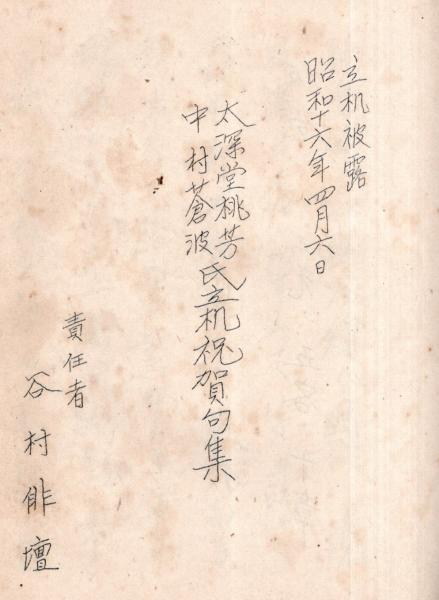 立机被露
昭和十六年四月六日
太深堂桃芳
中村蒼波
氏立机祝賀句集
責任者
谷村俳壇